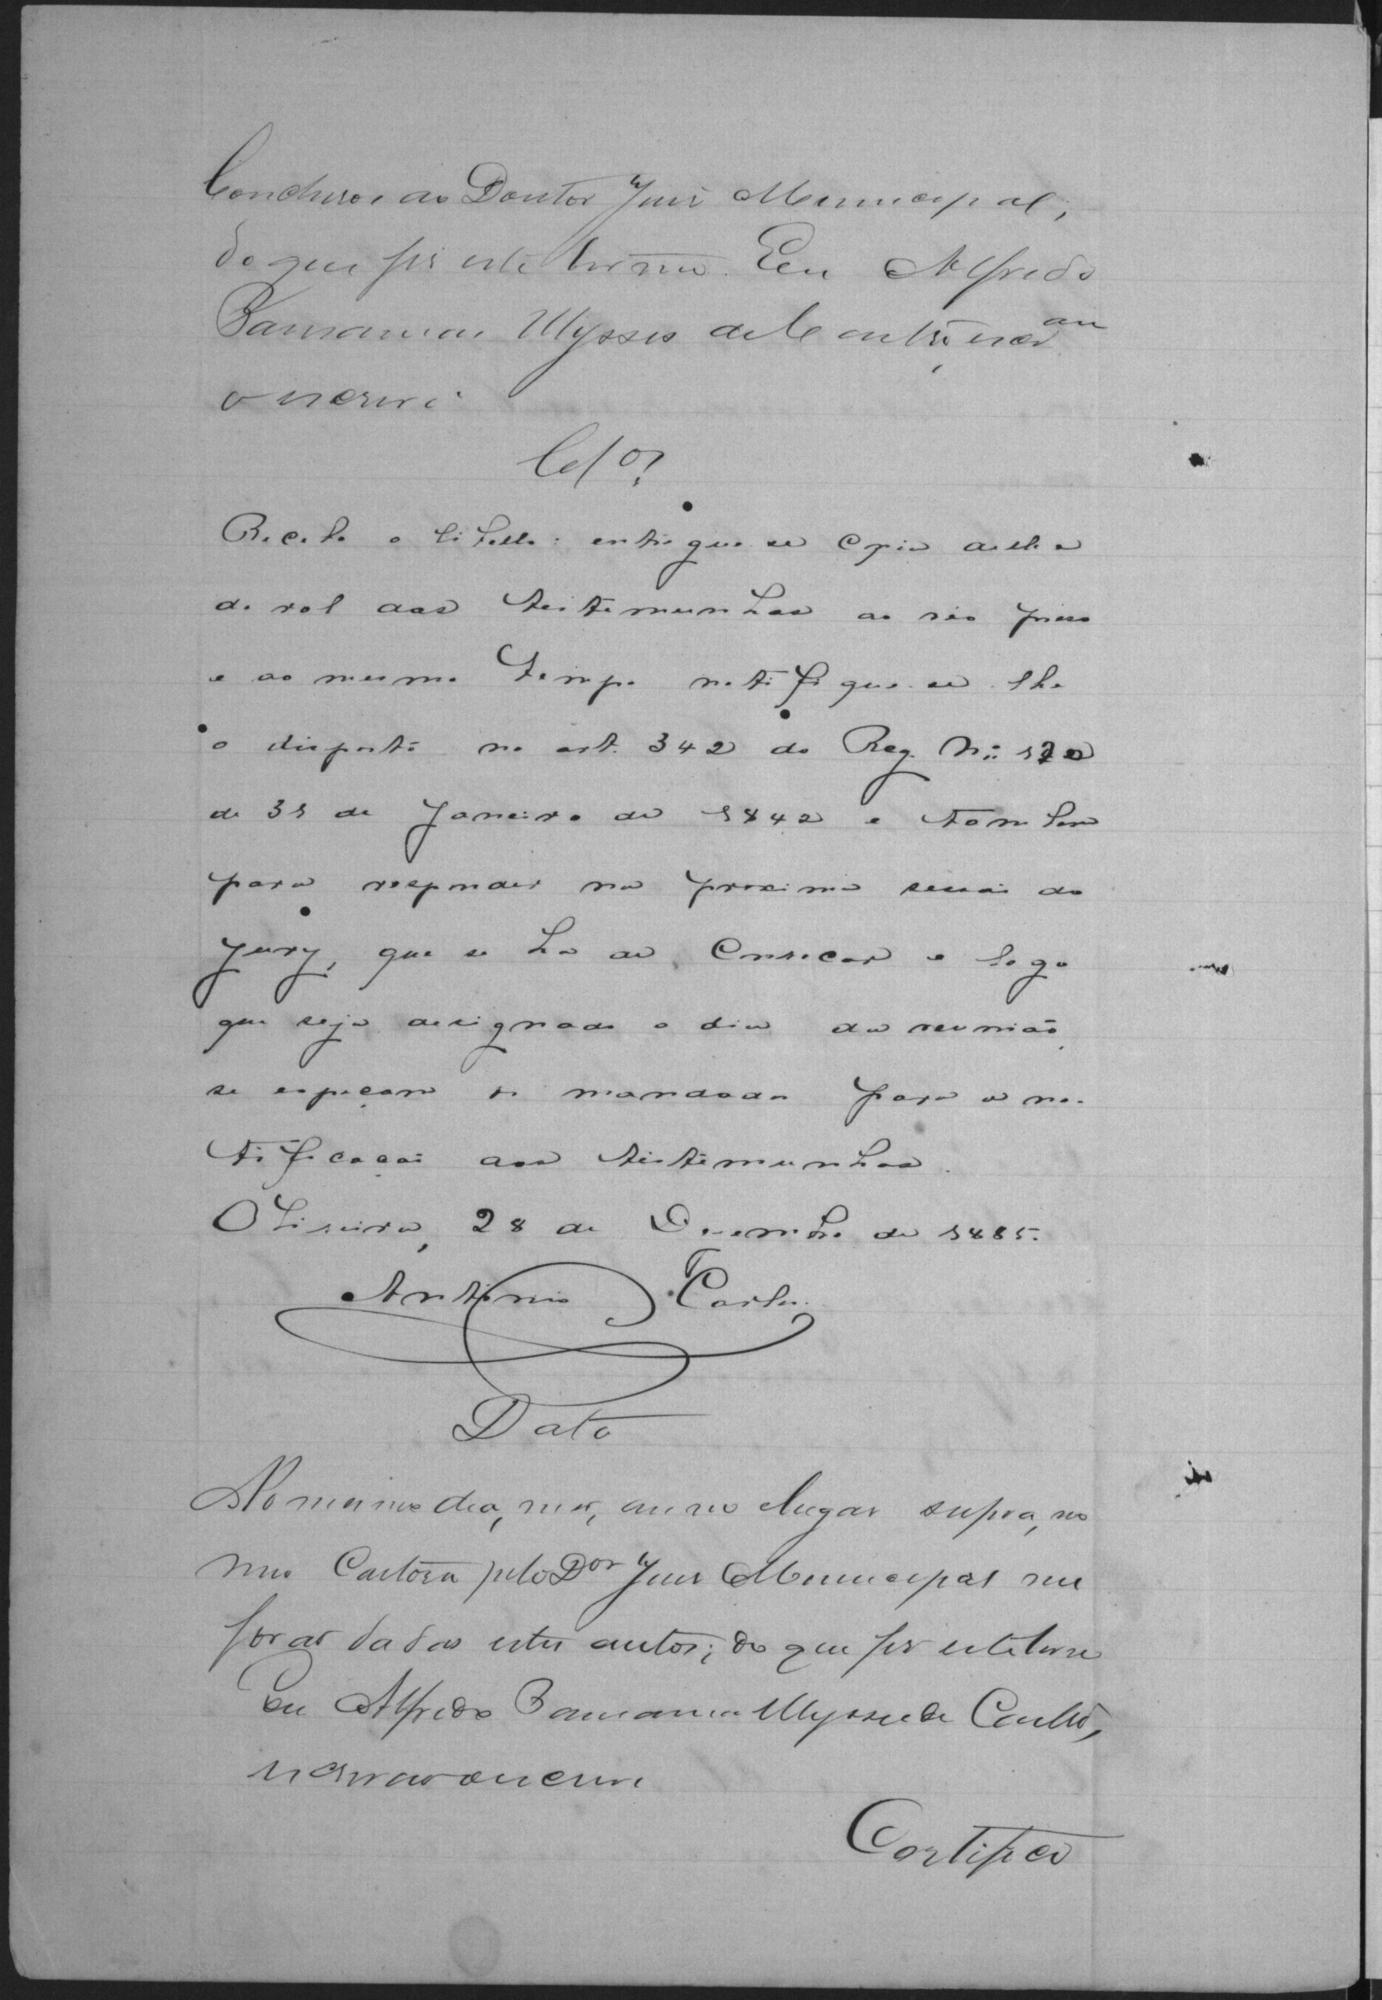 Conclusos ao Doutor Juis Municipal,
do que fis este termo. Eu Alfredo
Ulysses de Castro, escr^am
o escrevi
Cls^os
Recebo o libello: entregue-se copia delle e
do rol das testemunhas ao réo preso
e ao mesmo tempo notifique-se-lhe
o disposto no art. 342 do Reg. N.º 120
de 31 de Janeiro de 1842 e tambem
para responder na proxima sessão do
Jury, que se ha de convocar e logo
que seja designado o dia da reunião,
se expeçam os mandados para a no-
tificação das testemunhas.
Oliveira, 28 de Dezembro de 1885.
Antonio Carlos
Data
No mesmo dia, mes, anno e lugar supra, no
meu Cartorio pelo D^or Juis Municipal me
forão dados estes autos; do que fis este termo
Eu Alfredo Ulysses de
escrivão o escrevi
Certifico